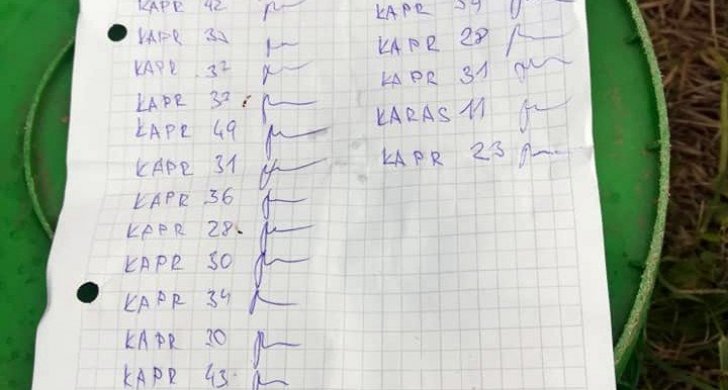 KAPR 42
KAPR 30
KAPR 32
KAPR 32
KAPR 49
KAPR 31
KAPR 36
KAPR 28
KAPR 30
KAPR 34
KAPR 30
KAPR 43
KAPR 34
KAPR 28
KAPR 31
KARAS 11
KAPR 23